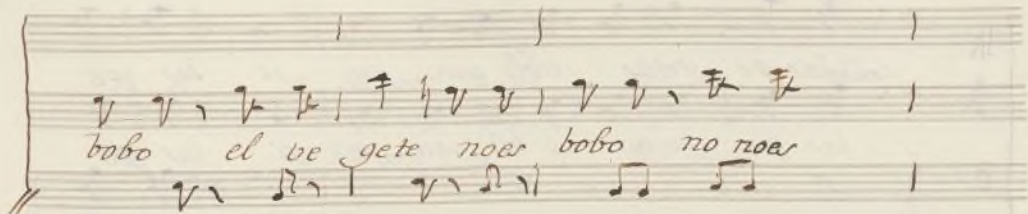 bobo el ve gete noes bobo no noes